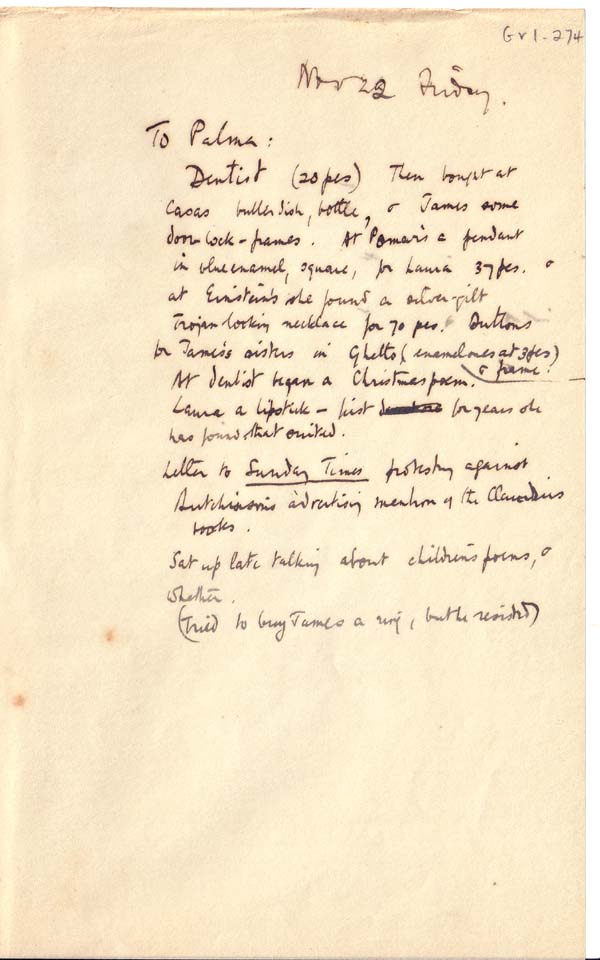 Gr 1-274
Nov 22 Friday.
To Palma:
Dentist (20 pes) Then bought at
Casas butter dish, bottle, & James some
door-lock-frames. At Pomar's a pendant
in blue enamel, square, for Laura 37 pes. &
at Einstein's she found a silver-gilt
Trojan-looking necklace for 70 pes. Buttons
for James's sisters in Ghetto (enamel ones at 3 pes)
& frame.
At dentist began a Christmas poem.
Laura a lipstick – first for years she
has found that suited.
Letter to Sunday Times protesting against
Hutchinson's advertising mention of the Claudius
books.
Sat up late talking about children's poems, &
whether.
(Tried to buy James a ring, but he resisted)